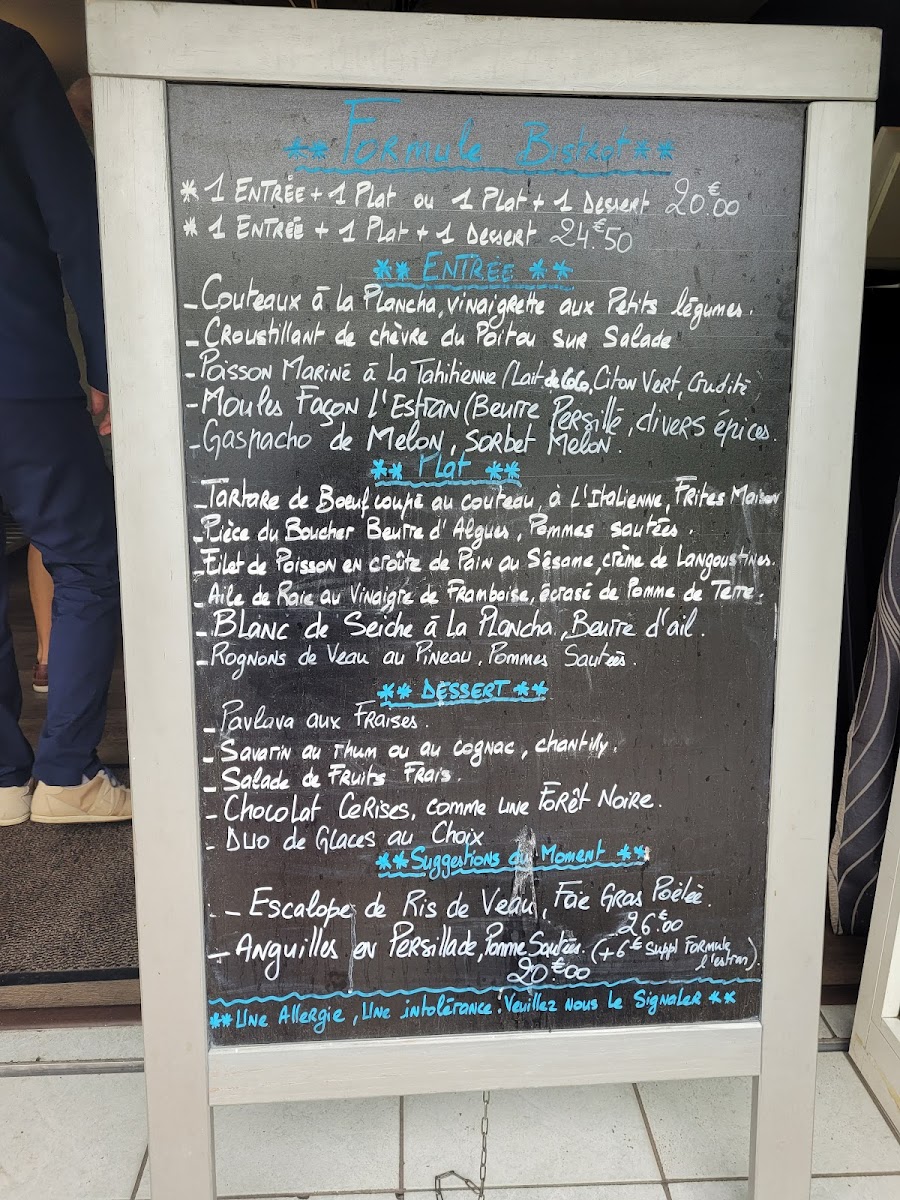 ** Formule Bistrot **
* 1 ENTRÉE + 1 Plat ou 1 Plat + 1 Dessert 20€00
* 1 ENTRÉE + 1 Plat + 1 Dessert 24€50
** ENTRÉE **
- Couteaux à la Plancha, vinaigrette aux Petits légumes.
- Croustillant de chèvre du Poitou sur Salade
- Poisson Mariné à La Tahitienne (Lait de Coco, Citron Vert, Crudité)
- Moules Façon l'Estran (Beurre Persillé, divers épices.
- Gaspacho de Melon, Sorbet Melon.
** Plat **
- Tartare de Boeuf coupé au couteau, à L'Italienne, Frites Maison
- Pièce du Boucher Beurre d'Algues, Pommes sautées.
- Filet de Poisson en croûte de Pain au Sésame, crème de Langoustines.
- Aile de Raie au Vinaigre de Framboise, écrasé de Pomme de Terre.
- Blanc de Seiche à la Plancha, Beurre d'ail.
- Rognons de Veau au Pineau, Pommes Sautées.
** DESSERT **
- Pavlava aux Fraises.
- Savarin au rhum ou au cognac, chantilly.
- Salade de Fruits Frais.
- Chocolat Cerises, comme une Forêt Noire.
- Duo de Glaces au Choix
** Suggestions du Moment **
- Escalope de Ris de Veau, Foie Gras Poêlée.
26€00
- Anguilles en Persillade, Pomme Sautées. (+6€ Suppl Formule l'estran).
20€00
** Une Allergie, Une intolérance : Veuillez nous Le Signaler **